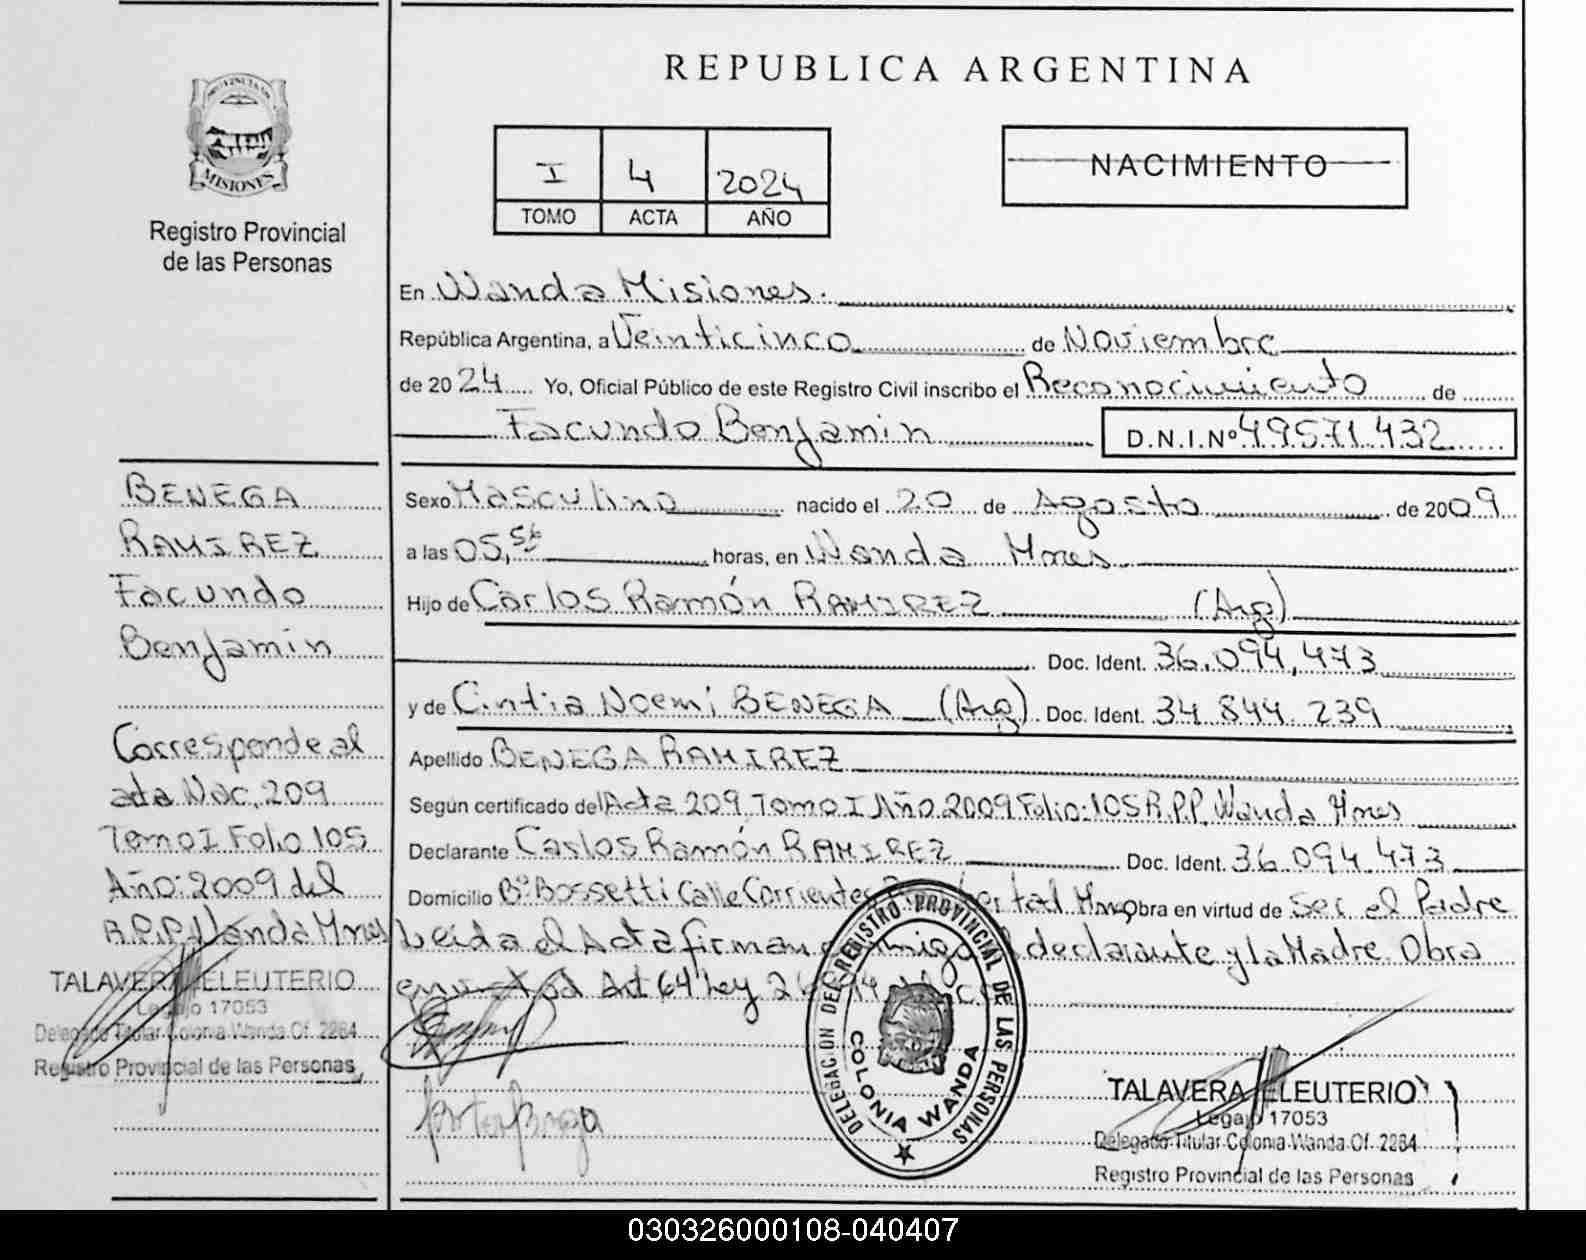 REPUBLICA ARGENTINA
PROVINCIA DE
MISIONES
Registro Provincial
de las Personas
I 4 2024
TOMO ACTA AÑO
NACIMIENTO
En Wanda Misiones.
República Argentina, a Veinticinco de Noviembre
de 2024 Yo, Oficial Público de este Registro Civil inscribo el Reconocimiento de
Facundo Benjamin D.N.I.Nº 49571432
Sexo Masculino nacido el 20 de Agosto de 2009
a las 05,54 horas, en Wanda Mnes
Hijo de Carlos Ramón RAMIREZ (Arg)
Doc. Ident. 36.094.473
y de Cintia Noemi BENEGA (Arg) Doc. Ident. 34 844 239
Apellido BENEGA RAMIREZ
Según certificado del Acta 209 Tomo I Año 2009 Folio: 105 R.P.P. Wanda Mnes
Declarante Carlos Ramón RAMIREZ Doc. Ident. 36.094.473
Domicilio Bº Bossetti Calle Corrientes Obra en virtud de Ser el Padre
Leida el Acta firman declarante y la Madre. Obra
Art 64 Ley
BENEGA
RAMIREZ
Facundo
Benjamin
Corresponde al
acta Nac. 209
Tomo I Folio 105
Año: 2009 del
R.P.P. Wanda Mnes
TALAVERA ELEUTERIO
Legajo 17053
Delegado Titular Colonia Wanda Of. 2284
Registro Provincial de las Personas
DELEGACION DEL REGISTRO PROVINCIAL DE LAS PERSONAS
COLONIA WANDA
TALAVERA ELEUTERIO
Legajo 17053
Delegado Titular Colonia Wanda Of. 2284
Registro Provincial de las Personas
030326000108-040407